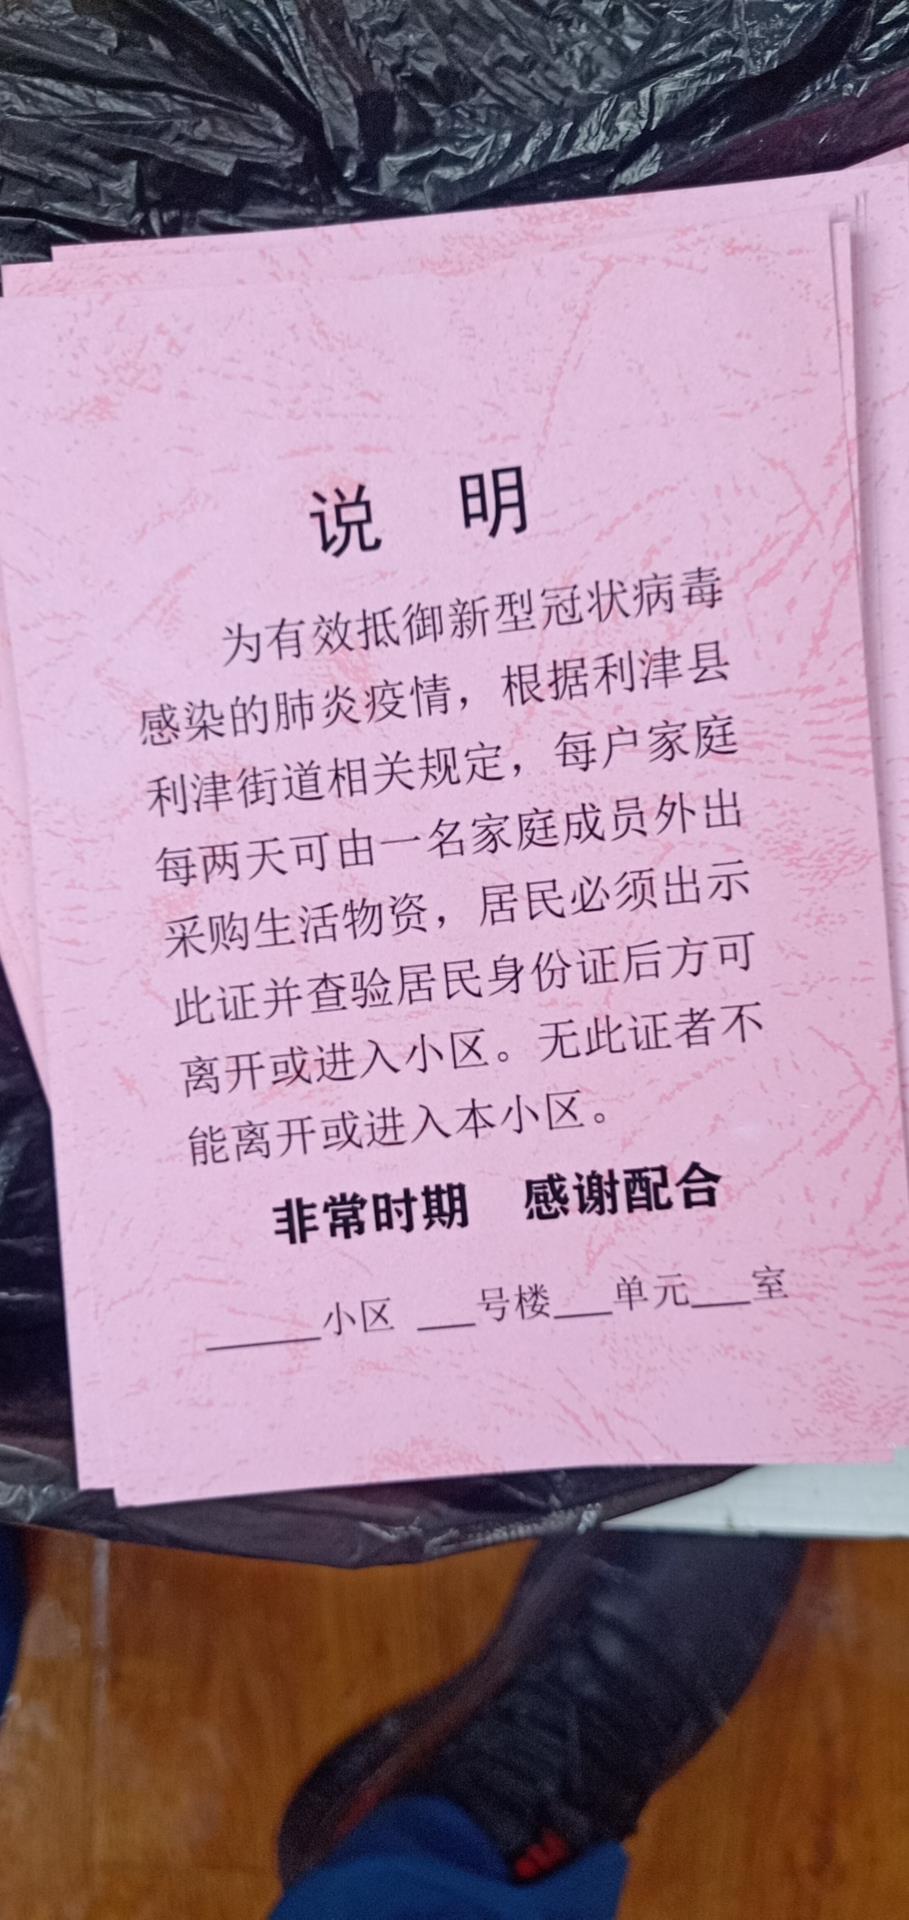 说 明
为有效抵御新型冠状病毒
感染的肺炎疫情，根据利津县
利津街道相关规定，每户家庭
每两天可由一名家庭成员外出
采购生活物资，居民必须出示
此证并查验居民身份证后方可
离开或进入小区。无此证者不
能离开或进入本小区。
非常时期 感谢配合
_____小区 ___号楼___单元___室